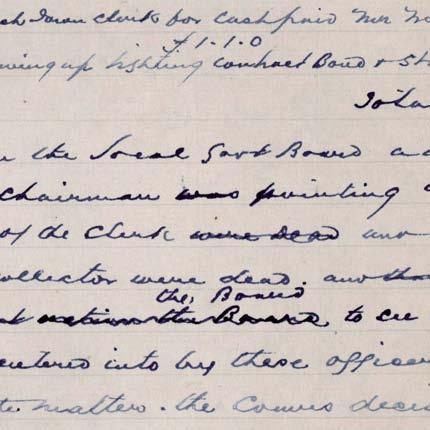 Town Clerk for Cash paid Mr
£1.1.0
up lighting contract Bond &
Tota
the Local Govt Board a
Chairman was pointing
of the Clerk were dead and
ollector were dead. and
the, Board
the Board, to
entered into by these officer
matters. the Comrs deci